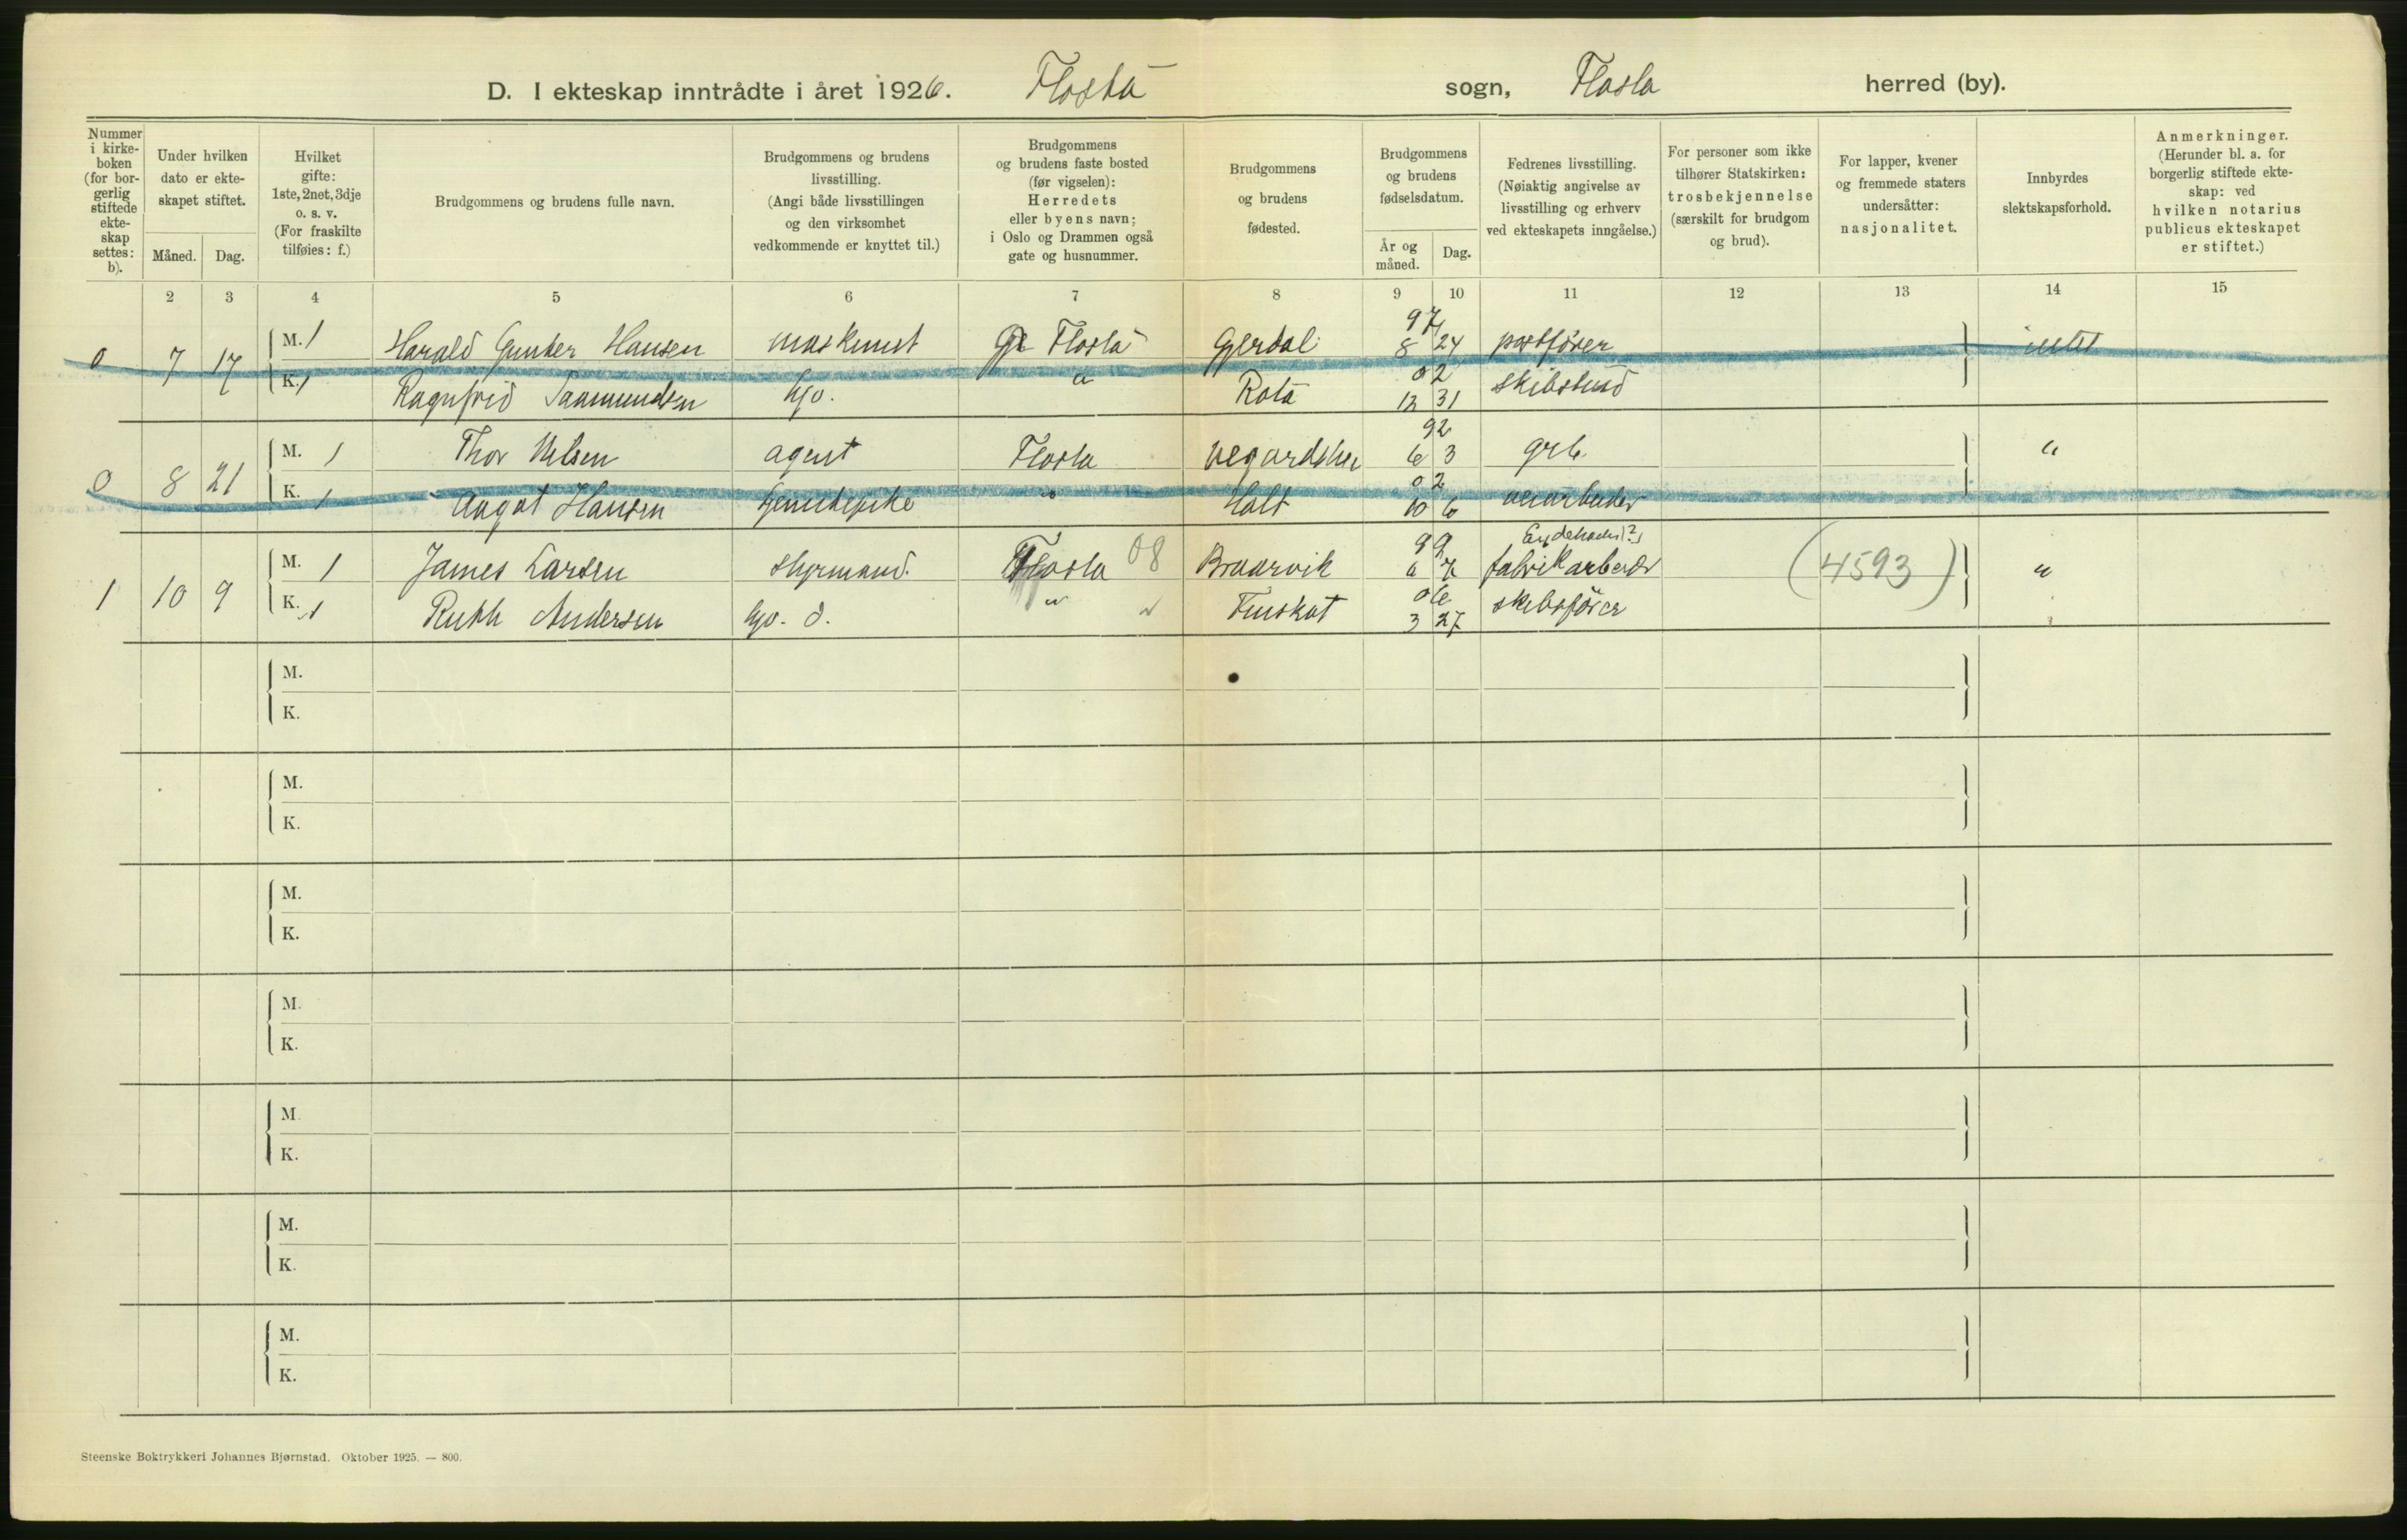 D. I ekteskap inntrådte i året 1926. Flosta sogn, Flosta herred (by).
Nummer i kirke-boken (for bor-gerlig stiftede ekte-skap settes: b).
Under hvilken dato er ekte-skapet stiftet.
Måned. Dag.
Hvilket gifte: 1ste, 2net, 3dje o. s. v. (For fraskilte tilføies: f.)
Brudgommens og brudens fulle navn.
Brudgommens og brudens livsstilling. (Angi både livsstillingen og den virksomhet vedkommende er knyttet til.)
Brudgommens og brudens faste bosted (før vigselen): Herredets eller byens navn; i Oslo og Drammen også gate og husnummer.
Brudgommens og brudens fødested.
Brudgommens og brudens fødselsdatum.
År og måned. Dag.
Fedrenes livsstilling. (Nøiaktig angivelse av livsstilling og erhverv ved ekteskapets inngåelse.)
For personer som ikke tilhører Statskirken: trosbekjennelse (særskilt for brudgom og brud).
For lapper, kvener og fremmede staters undersåtter: nasjonalitet.
Innbyrdes slektskapsforhold.
Anmerkninger. (Herunder bl. a. for borgerlig stiftede ekte-skap: ved hvilken notarius publicus ekteskapet er stiftet.)
2 3 4 5 6 7 8 9 10 11 12 13 14 15
0 7 17 M. 1 Harald Gunder Hansen maskinist Flosta Gjerdal 97 8 24 postfører intet
K. 1 Ragnfrid Saamundsen hjo. " Rota 02 12 31 skibstmd
0 8 21 M. 1 Thor Nilsen agent Flosta Vegardshei 92 6 3 grb. "
K. 1 Aagot Hansen hjemmehjelpe " Holt 02 10 6 veiarbeider
1 10 9 M. 1 James Larsen styrmand. Flosta 08 Braarvik 99 6 7 Eydehavn(?) fabrikarbeider (4593) "
K. 1 Ruth Andersen hjo. d. " " 06 3 27 skibsfører
M.
K.
M.
K.
M.
K.
M.
K.
M.
K.
M.
K.
M.
K.
Steenske Boktrykkeri Johannes Bjørnstad. Oktober 1925. — 800.